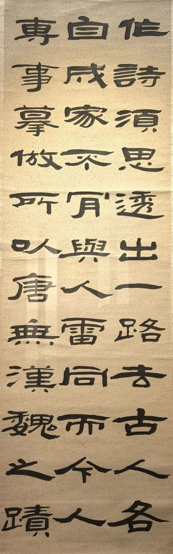 作詩須思透出一路去古人各
自成家不肎與人雷同而今人
專事摹倣所以唐無漢魏之蹟